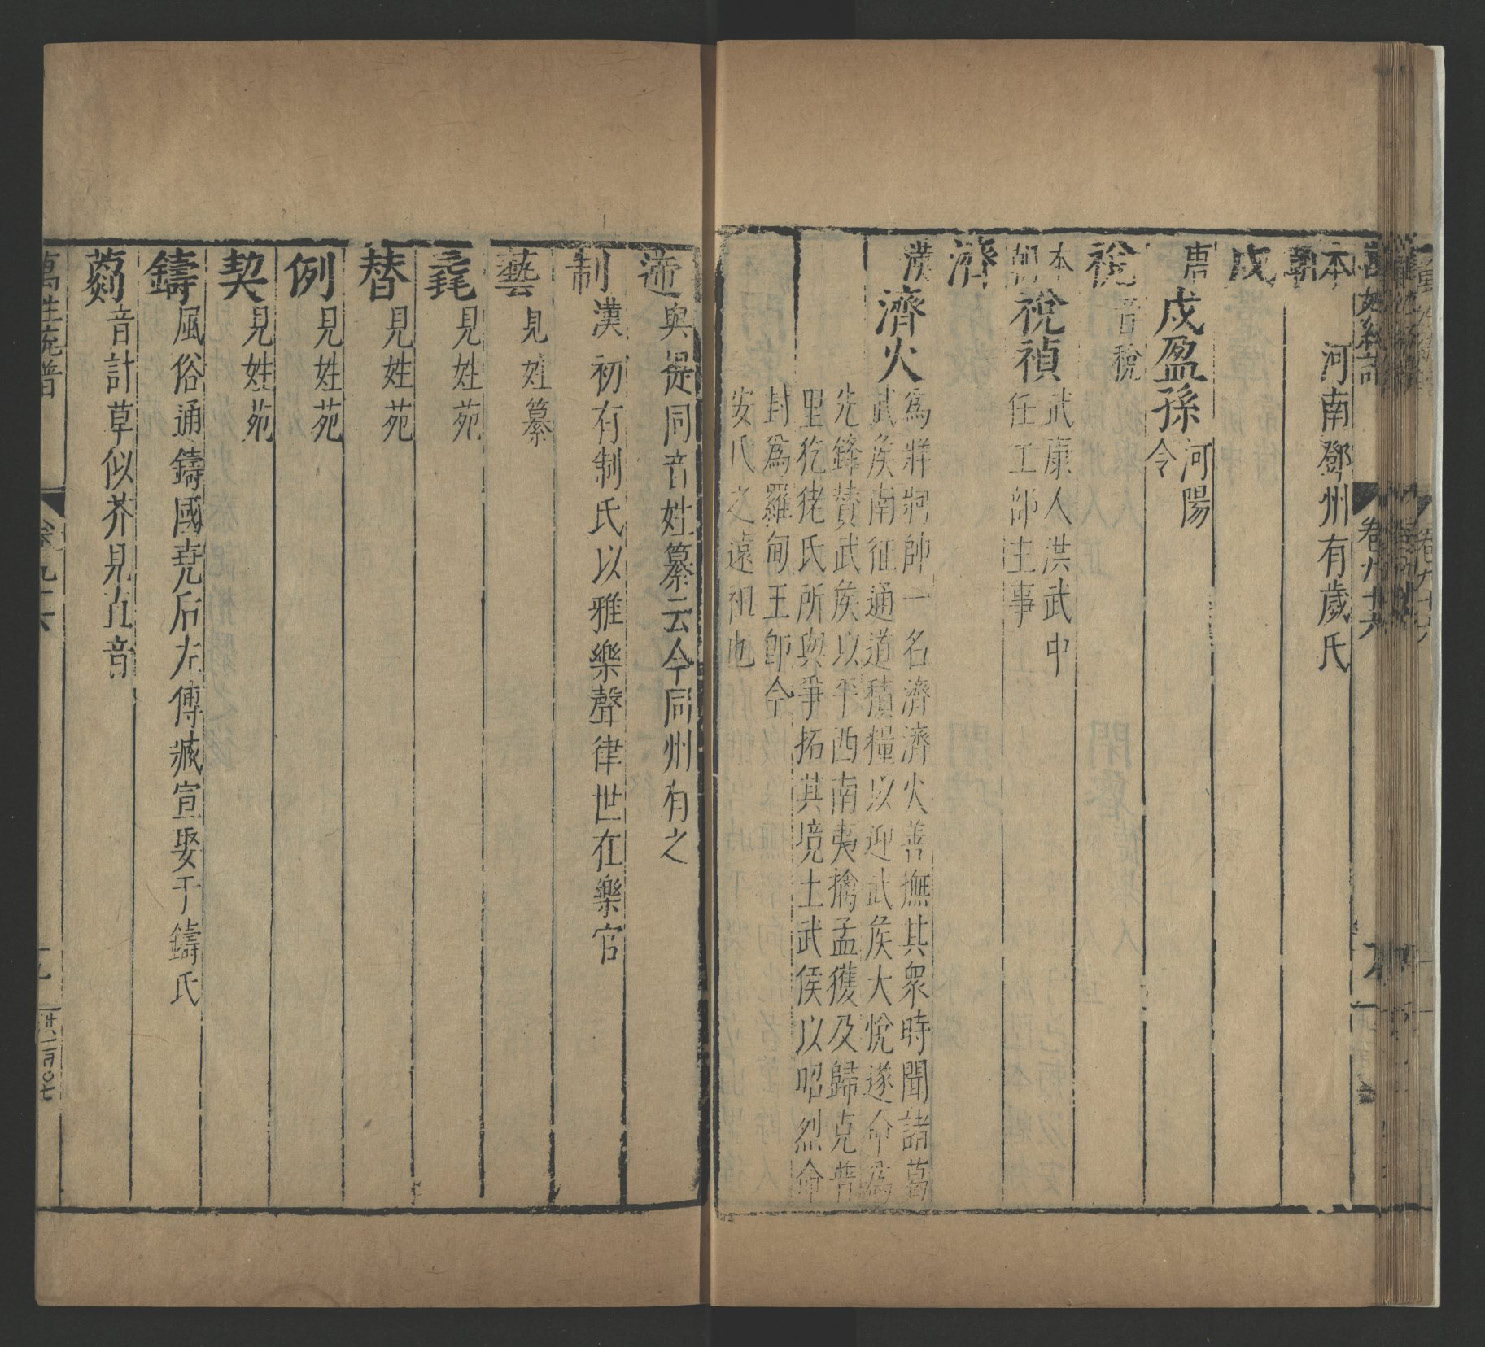 本朝 河南鄧州有歲氏
戍
唐 戍盈孫 河陽
令
稅 音稅
本朝 稅禎 武康人洪武中
任工部主事
濟
漢 濟火 為牂牁帥一名濟濟火善撫其衆時聞諸葛
武侯南征通道積糧以迎武侯大悅遂命為
先鋒贊武侯以平西南夷擒孟獲及歸克普
里犵狫氏所與爭拓其境土武侯以昭烈命
封為羅甸王即今
安氏之遠祖也
遰 與提同音姓纂云今同州有之
制 漢初有制氏以雅樂聲律世在樂官
藝 見姓纂
毳 見姓苑
替 見姓苑
例 見姓苑
契 見姓苑
鑄 風俗通鑄國堯后左傳臧宣娶于鑄氏
薊 音計草似芥見直音
萬姓統譜 卷九十六